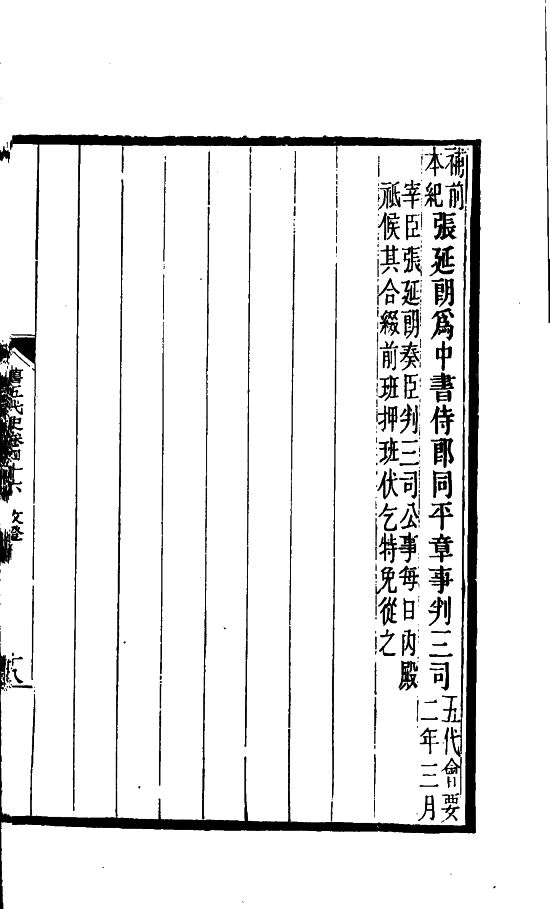 補前
本紀
張延朗爲中書侍郎同平章事判三司
五代會要
二年三月
宰臣張延朗奏臣判三司公事每日內殿
祇候其合綴前班押班伏乞特免從之
舊五代史卷四十六 攷證
十八